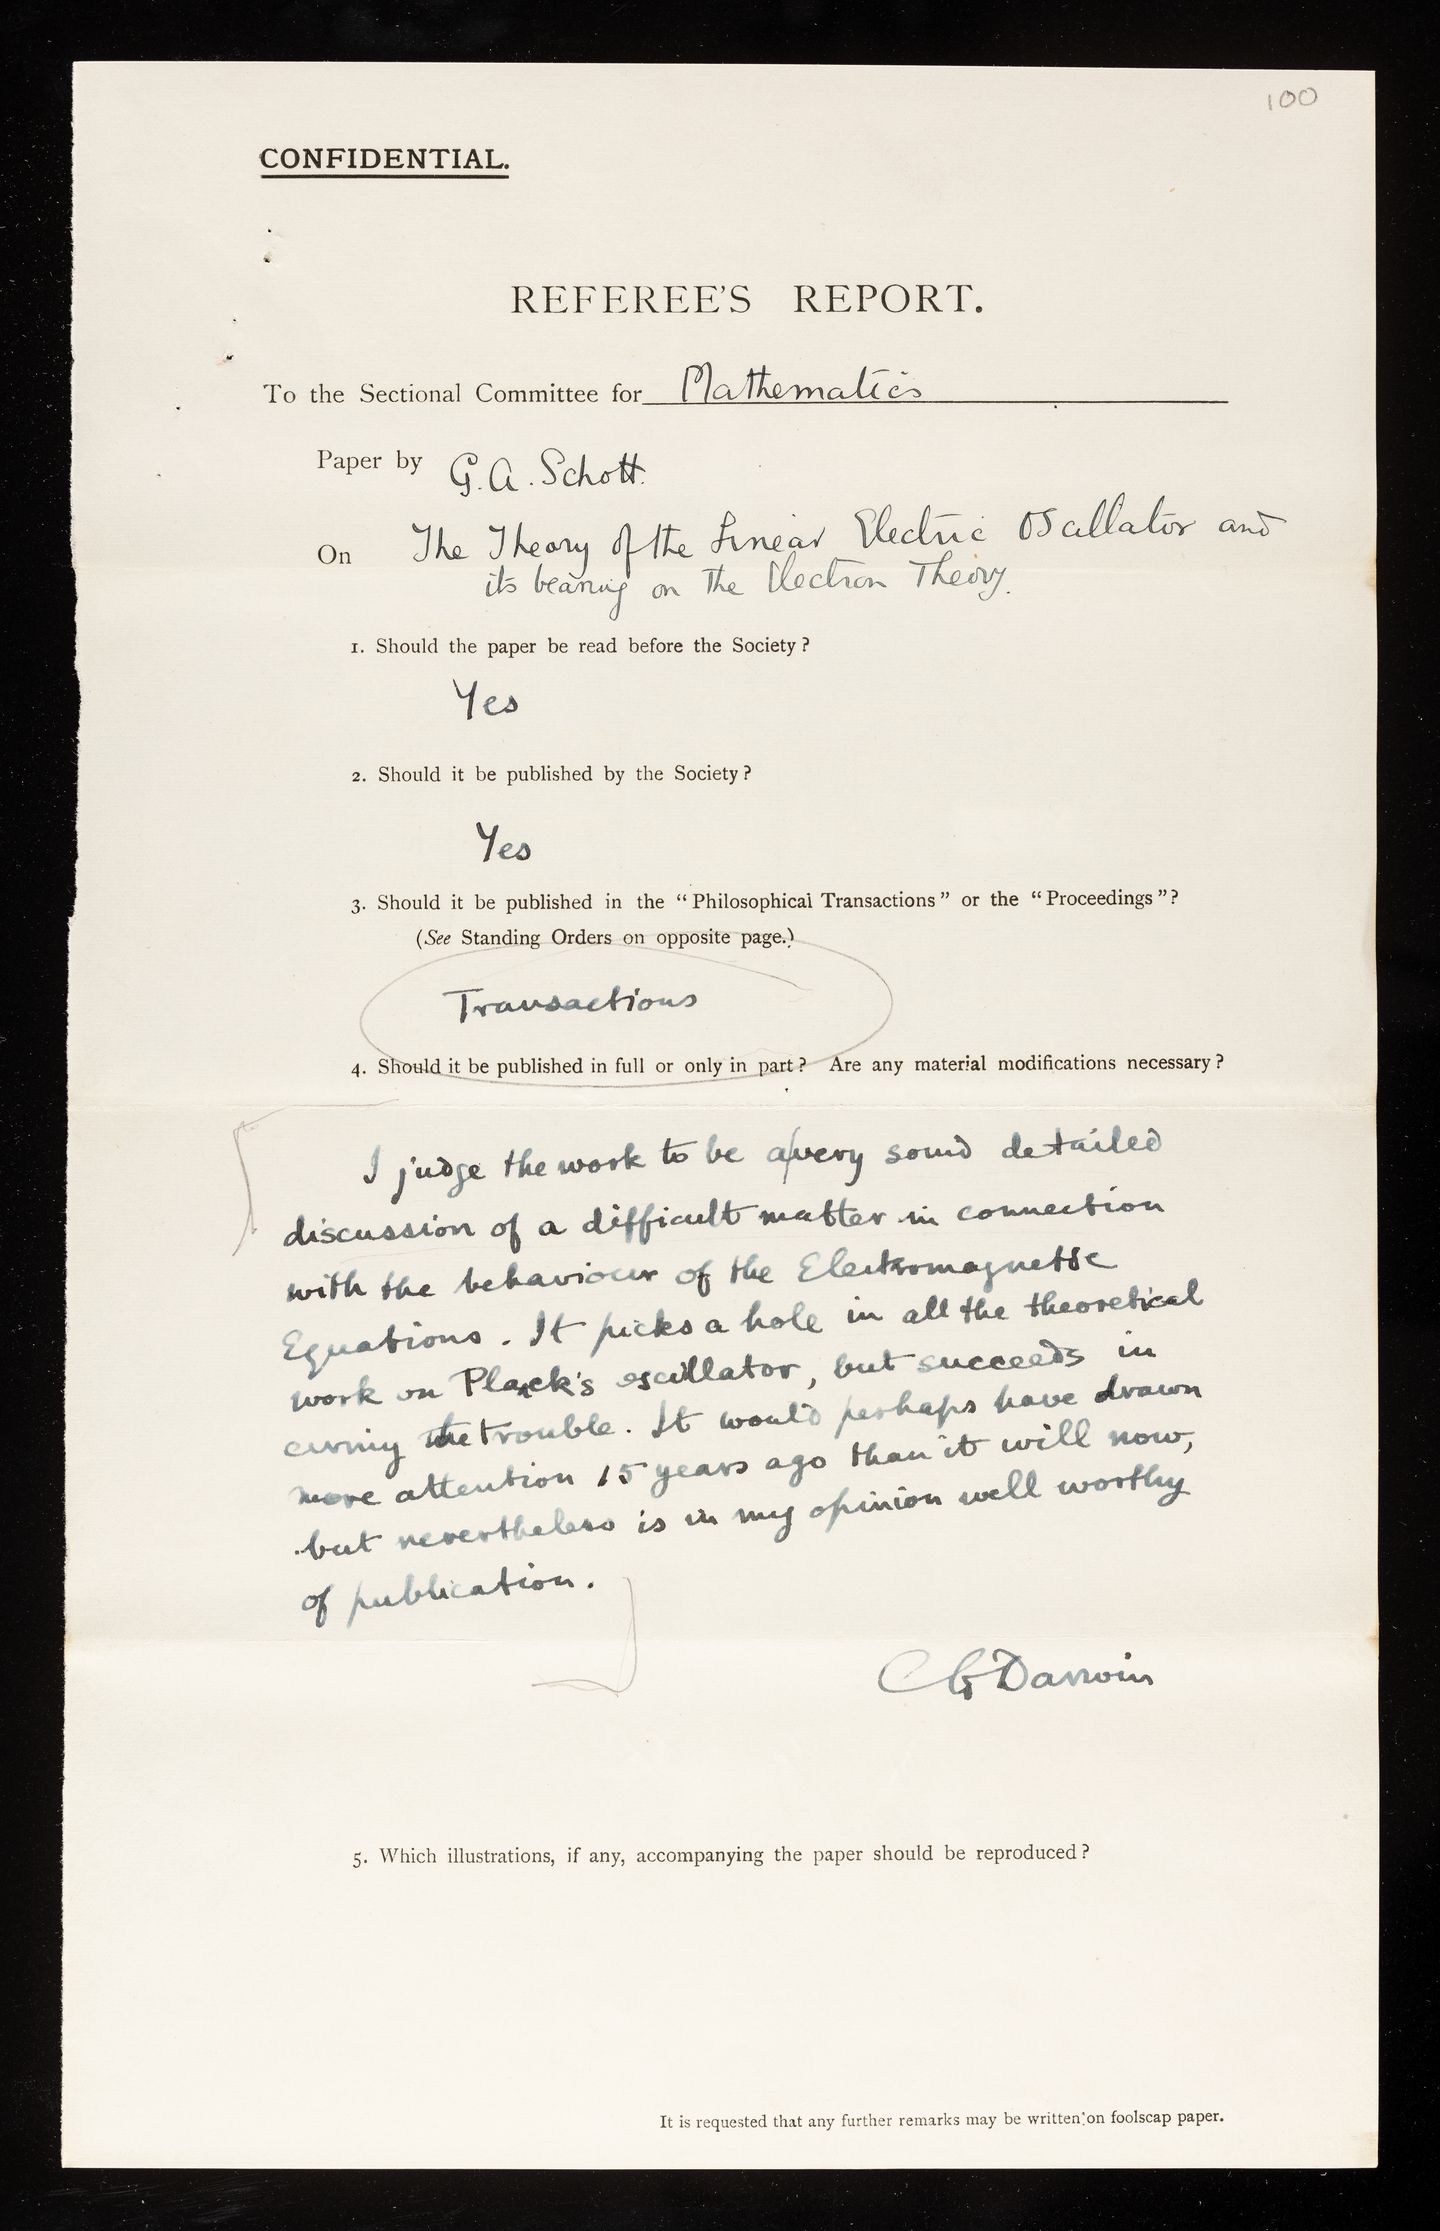 100
CONFIDENTIAL.
REFEREE'S REPORT.
To the Sectional Committee for Mathematics
Paper by G. A. Schott.
On The Theory of the Linear Electric Oscillator and
its bearing on the Electron Theory.
1. Should the paper be read before the Society?
Yes
2. Should it be published by the Society?
Yes
3. Should it be published in the "Philosophical Transactions" or the "Proceedings"?
(See Standing Orders on opposite page.)
Transactions
4. Should it be published in full or only in part? Are any material modifications necessary?
I judge the work to be a very sound detailed
discussion of a difficult matter in connection
with the behaviour of the Electromagnetic
Equations. It picks a hole in all the theoretical
work on Planck's oscillator, but succeeds in
curing the trouble. It would perhaps have drawn
more attention 15 years ago than it will now,
but nevertheless is in my opinion well worthy
of publication.
C G Darwin
5. Which illustrations, if any, accompanying the paper should be reproduced?
It is requested that any further remarks may be written on foolscap paper.